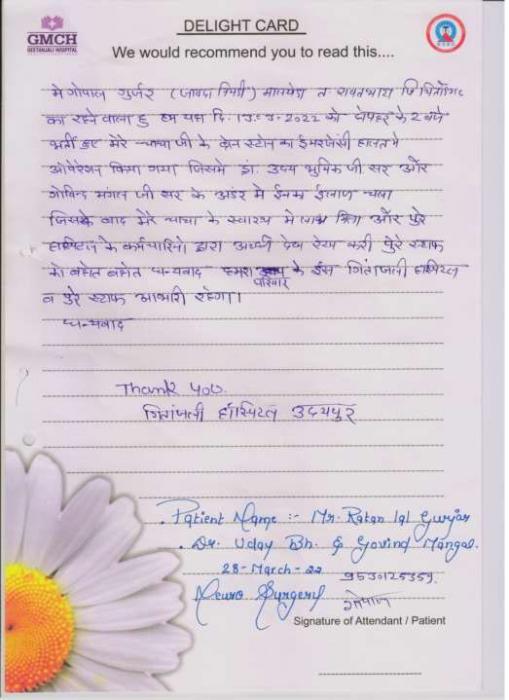 GMCH
GEETANJALI HOSPITAL
DELIGHT CARD
We would recommend you to read this....
मे गोपाल गुर्जर (जावदा निमडी) मानपुरा त रावतभाटा जि चित्तोडगढ
का रहने वाला हु हम यहा दि. 2022 को दोपहर के 2 बजे
भर्ती हुए मेरे चाचा जी के ब्रेन स्टोन का ईमरजेंसी हालत मे
ओपरेशन किया गया जिसमे डा. उदय भुमिक जी सर और
गोविन्द मंगल जी सर के अंडर मे ईनका ईलाज चला
जिसके बाद मेरे चाचा के स्वास्थ्य मे लाभ मिला और पुरे
हास्पिटल के कर्मचारियो द्वारा अच्छी देख रेख करी पुरे स्टाफ
को बहोत बहोत धन्यवाद हमारा परिवार के ईस गितांजली हास्पिटल
व पुरे स्टाफ आभारी रहेगा।
धन्यवाद
Thank you.
गितांजली हॉस्पिटल उदयपुर
Patient Name :- Mr. Ratan lal Gurjar
Dr. Uday Bh. & Govind Mangal.
28-March-22 9530125359.
Neuro Surgery गोपाल
Signature of Attendant / Patient